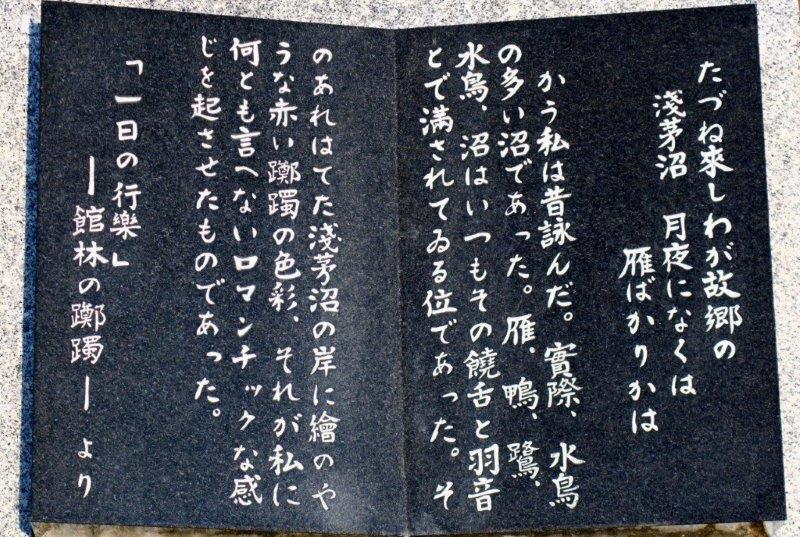 たづね來しわが故郷の
淺茅沼　月夜になくは
雁ばかりかは
かう私は昔詠んだ。實際、水鳥
の多い沼であった。雁、鴨、鷺、
水鳥、沼はいつもその饒舌と羽音
とで満されてゐる位であった。そ
のあれはてた淺茅沼の岸に繪のや
うな赤い躑躅の色彩、それが私に
何とも言へないロマンチックな感
じを起させたものであった。
「一日の行樂」
―館林の躑躅―より